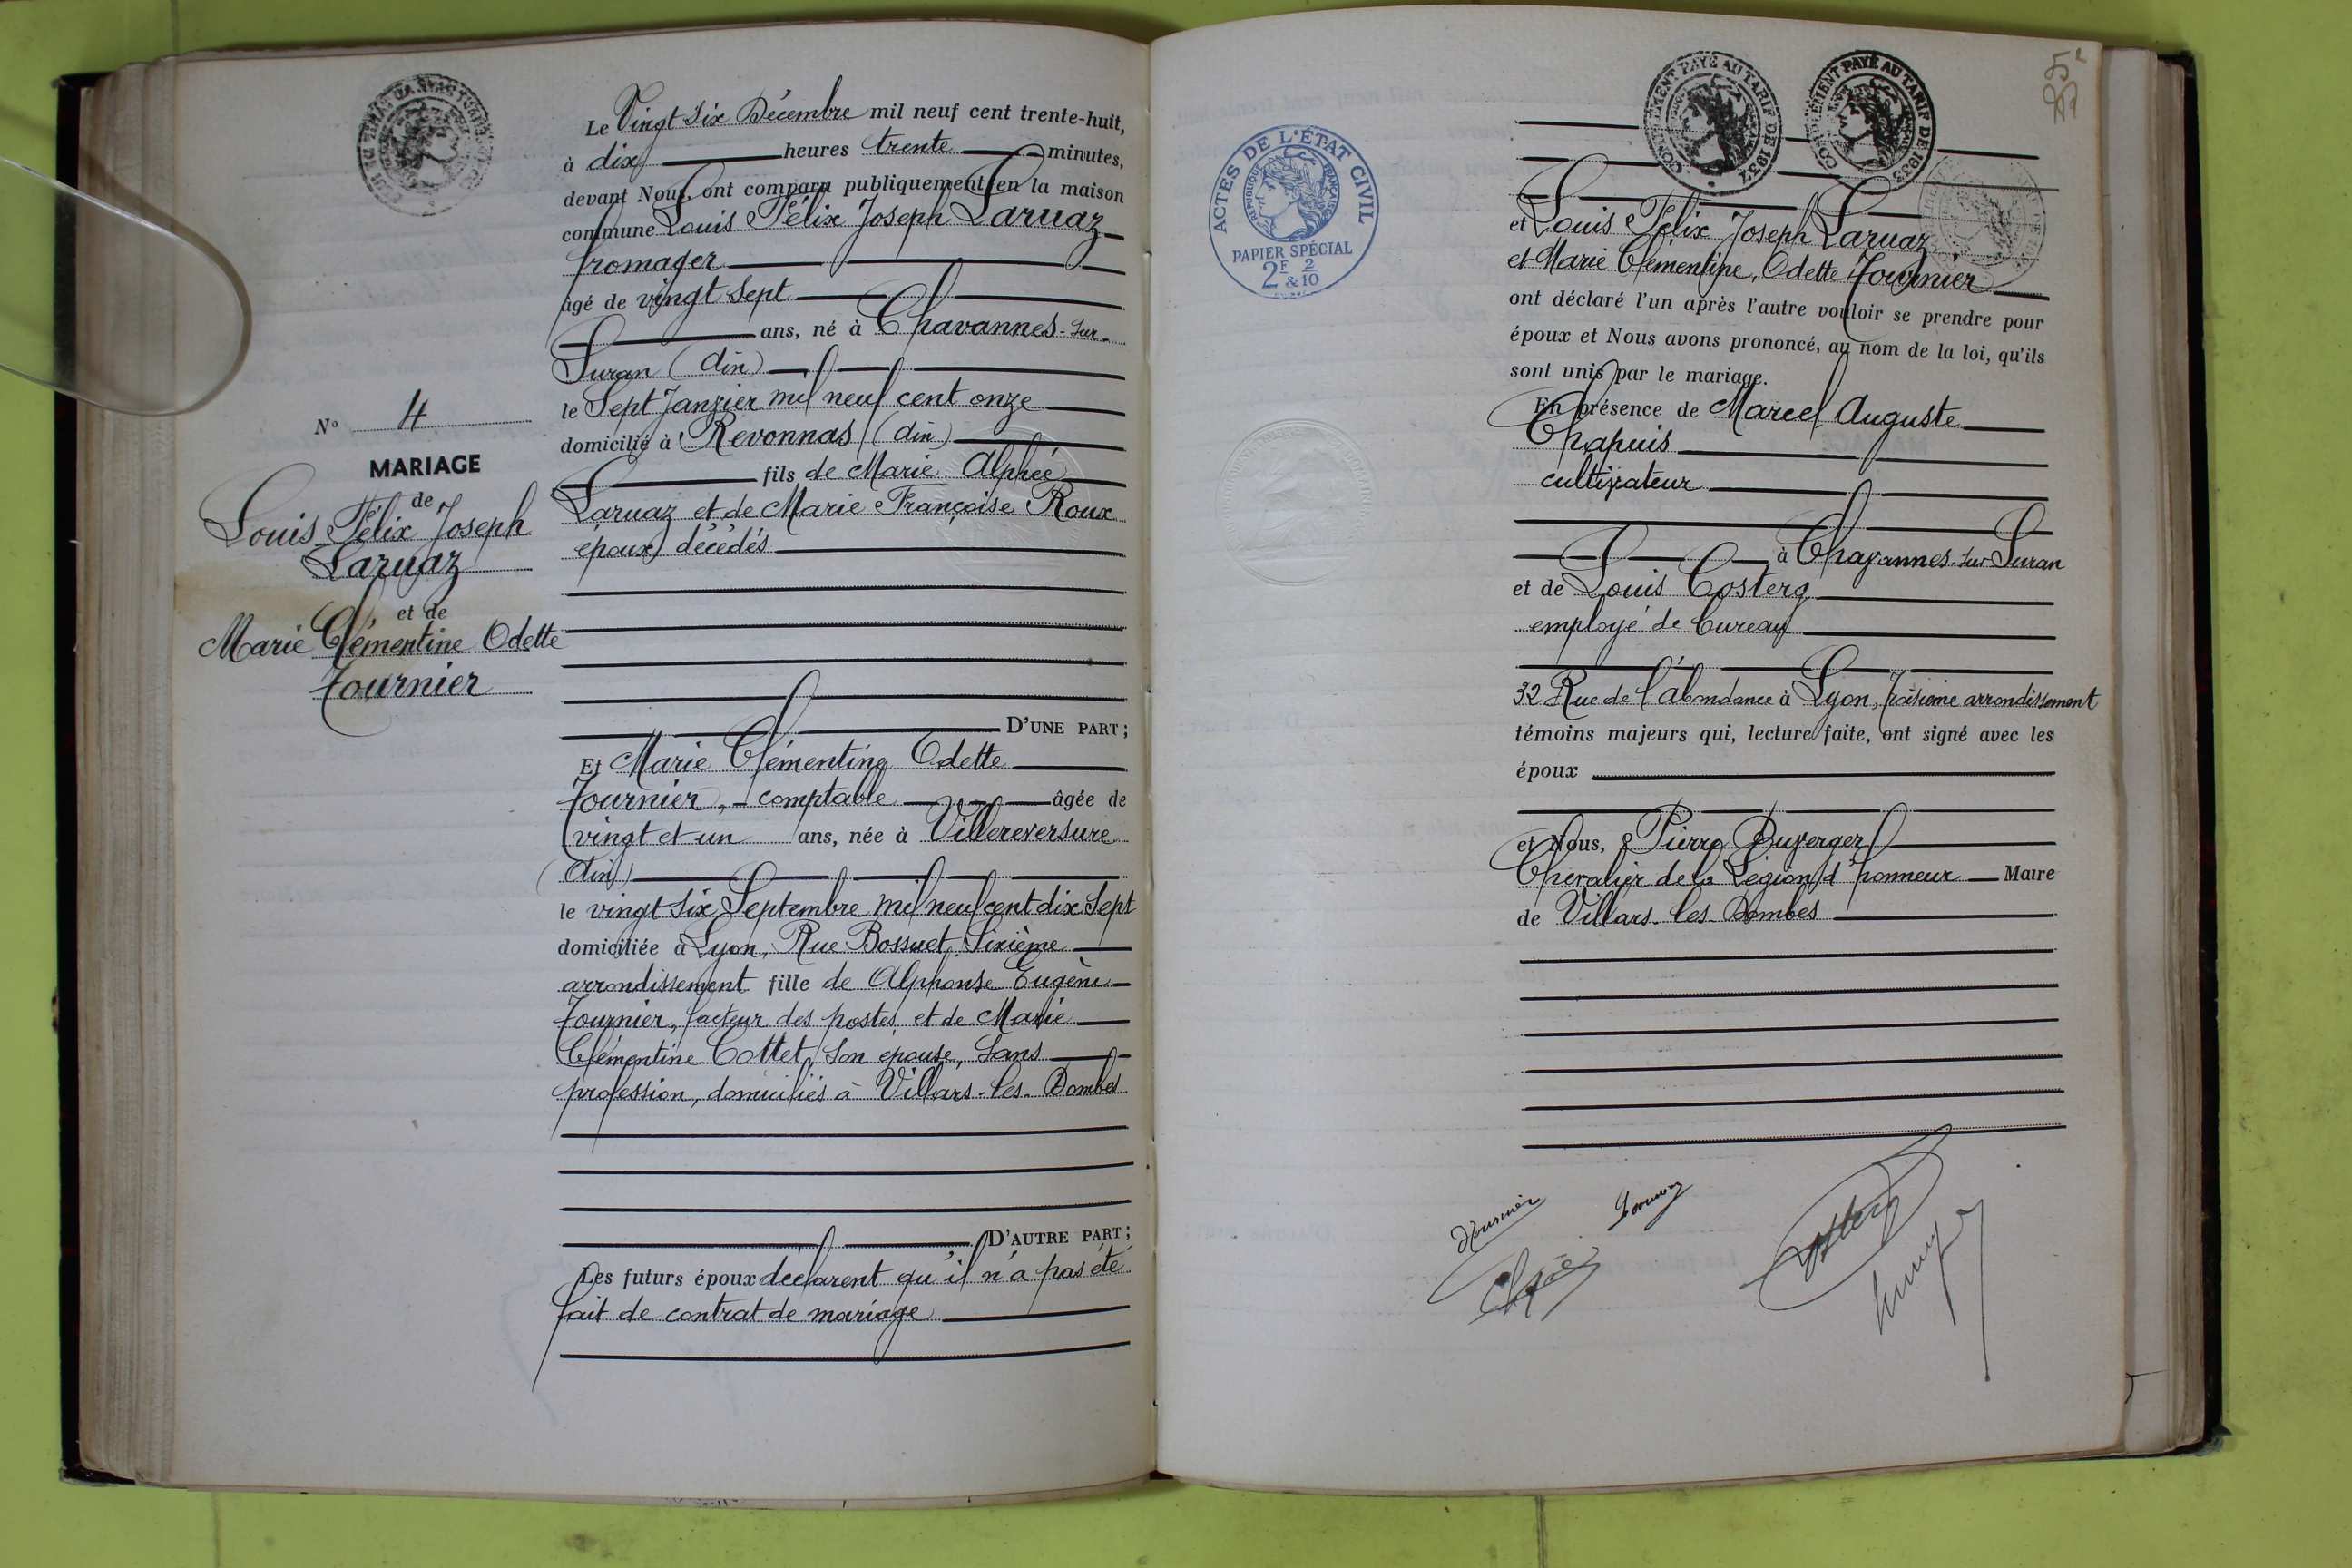 Le Vingt Six Décembre mil neuf cent trente-huit,
à dix heures trente minutes,
devant Nous, ont comparu publiquement en la maison
commune Louis Félix Joseph Laruaz
fromager
âgé de vingt Sept
ans, né à Chavannes-sur-
Suran (Ain)
le Sept Janvier mil neuf cent onze
domicilié à Revonnas (Ain)
fils de Marie Alphée
Laruaz et de Marie Françoise Roux
époux décédés
D'UNE PART;
Nº 4
MARIAGE
de
Louis Félix Joseph
Laruaz
et de
Marie Clémentine Odette
Tournier
Et Marie Clémentine Odette
Tournier, comptable âgée de
vingt et un ans, née à Villereversure
(Ain)
le vingt Six Septembre mil neuf cent dix Sept
domiciliée à Lyon, Rue Bossuet, Sixième
arrondissement fille de Alphonse Eugène
Tournier, facteur des postes et de Marie
Clémentine Cottet, son épouse, sans
profession, domiciliés à Villars-les-Dombes
D'AUTRE PART;
Les futurs époux déclarent qu'il n'a pas été
fait de contrat de mariage
COMPLÉMENT PAYÉ AU TARIF DE 1937
COMPLÉMENT PAYÉ AU TARIF DE 1933
ACTES DE L'ÉTAT CIVIL
RÉPUBLIQUE FRANÇAISE
PAPIER SPÉCIAL
2F & 2/10
et Louis Félix Joseph Laruaz
et Marie Clémentine, Odette Tournier
ont déclaré l'un après l'autre vouloir se prendre pour
époux et Nous avons prononcé, au nom de la loi, qu'ils
sont unis par le mariage.
En présence de Marcel Auguste
Chapuis
cultivateur
à Chavannes-sur-Suran
et de Louis Costerg
employé de bureau
32 Rue de l'Abondance à Lyon, troisième arrondissement
témoins majeurs qui, lecture faite, ont signé avec les
époux
et Nous, Pierre Duverger
Chevalier de la Légion d'honneur Maire
de Villars-les-Dombes
Tournier
Laruaz